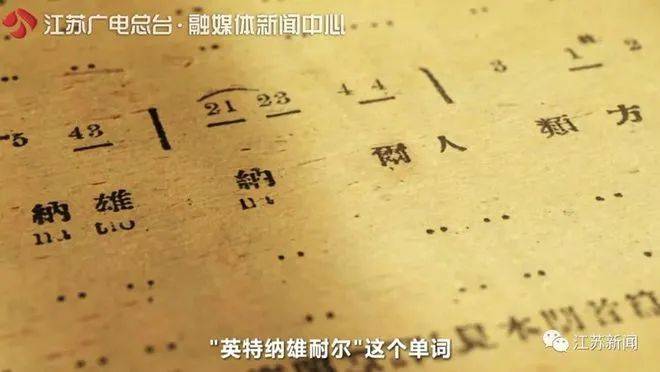 江苏广电总台·融媒体新闻中心
5 43 | 21 23 4 4 | 3 1 2
納雄 納 爾人 類方
"英特纳雄耐尔"这个单词
江苏新闻